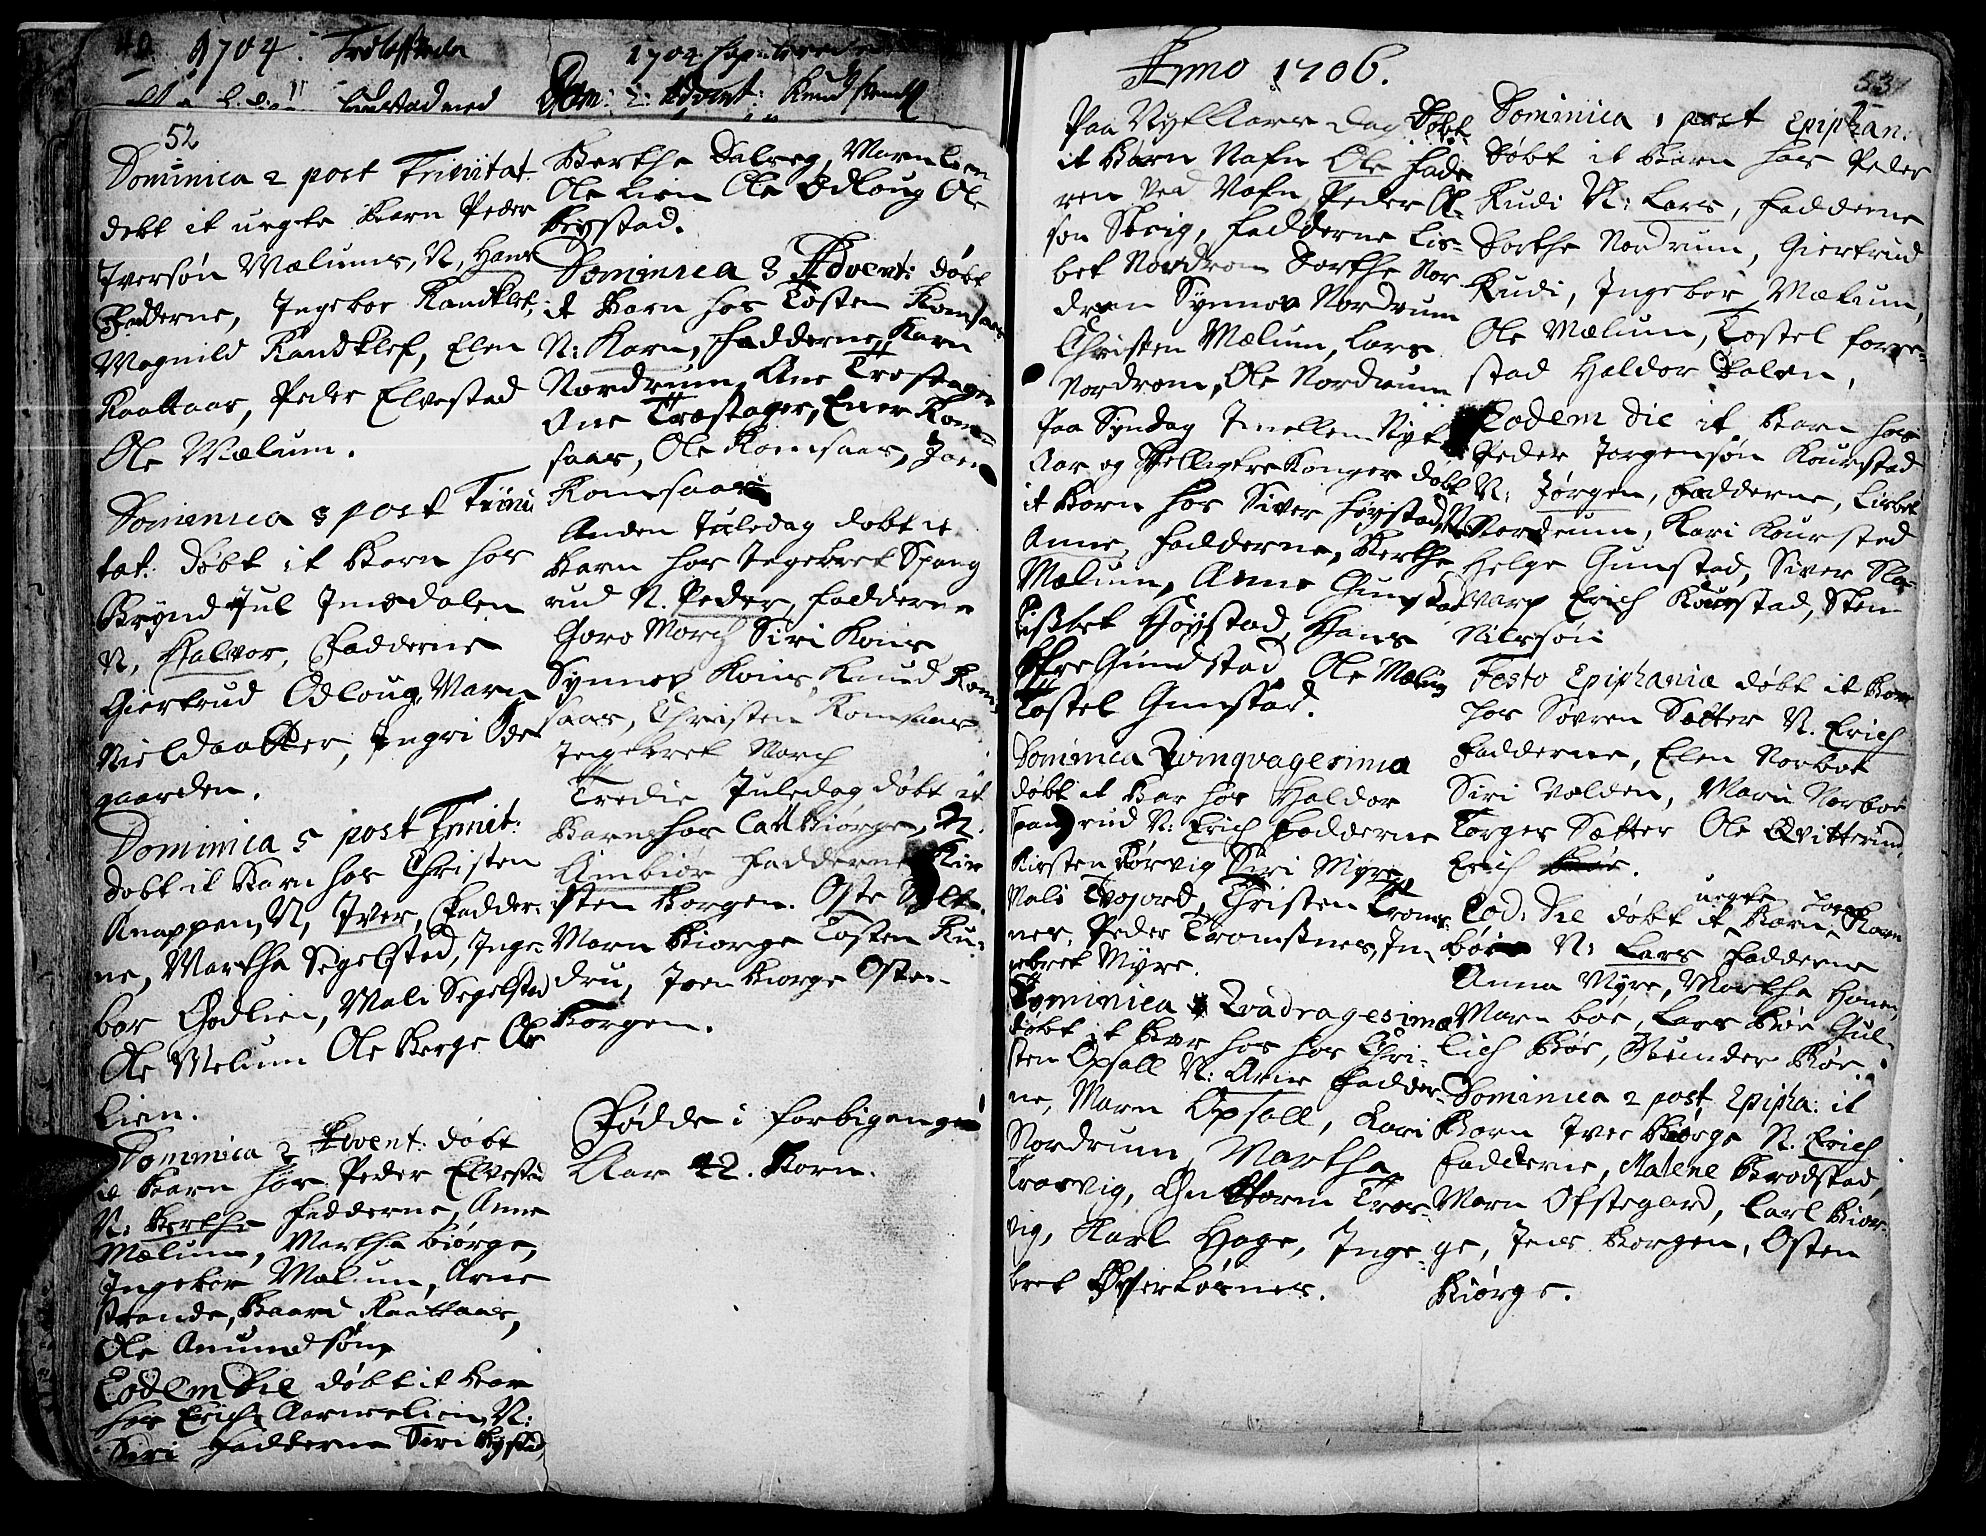 40 1704.
1704
Dom: 2 Advent: Knud
52
Dominica 2 post Trinitat.
debt it uegte Barn Peder
Iversøn Mælums, N, Hans
Fadderne, Ingebor Randklef,
Magnild Randklef, Elen
Raattaas, Peder Elvestad
Ole Mælum.
Dominica 3 post Trini
tat: døbt it Barn hos
Bryndjul Imsdalen
N, Halvor, Fadderne
Giertrud Odloug, Marn
Nieldaatter, Ingri Ode
gaarden.
Dominica 5 post Trinit:
dobt it Barn hos Christen
Knappen, N, Iver, Fadder:
ne, Martha Segelstad, Inge
bor Godlien, Mali Segelstad
Ole Melum Ole Berge Ole
Lien.
Dominica 2 Advent: døbt
it Barn hos Peder Elvestad
N: Berthe Fadderne, Anne
Mælum, Martha Biørge,
Ingebor Mælum, Arne
Strande, Baard Raattaas,
Ole Amundsøn,
Eodem Die døbt it Bar
hos Erich Aarneslien, N:
Siri Fadderne Siri Bystad,
Berthe Dalseg, Marn Lien
Ole Lien Ole Odloug Ole
Bystad.
Dominica 3 Advent: døbt
it Barn hos Tosten Romsaas
N: Karn, Fadderne, Karn
Nordrum, Ane Trostager
One Træstager, Ener Rom=
saas, Ole Romsaas, Joen
Romsaas
Anden Juledag døbt it
Barn hos Ingebret Spang
rud N. Peder, Fadderne
Goro Morch Siri Kois
Synnev Kois, Knud Rom
saas, Christen Romsaas
Ingebret Morch
Tredie Juledag døbt it
Barn hos Carl Biørge, N.
Ambiør Fadderne Kir
sten Borgen. Oste
Marn Biørge Tosten Ru=
dru, Joen Biorge Osten
Borgen.
Fødde i forbigangen
Aar 42. Børn.
Anno 1706.
53
Paa Nyt Aars dag Døbt
it Børn Nafn Ole Fade
ren ved Nafn, Peder Ol=
søn Skrig, Fadderne Lis=
bet Nordrom Dorthe Nor
drom Synnov Nordrum
Christen Mælum, Lars
Nordrom, Ole Nordrum
Paa Syndag Imellem Nyt
Aar og Helligtre Konger døbt
it Børn hos Siver Høystad, N:
Anne, Fadderne, Berthe
Mælum, Anne Gunstad
Lisbet Høystad, Hans
Gundstad Ole Mælum
Tostel Gunstad.
Dominica Qvinqvagesima
døbt it Bar hos Haldor
Spangrud N: Erich Fadderne
Kirsten Sørvig Siri Myre
Mali Trojord, Christen Troms
nes, Peder Tromsnes, In
gebret Myre.
Dominica 1 Qvadragesimæ
døbt it Bar hos hos Chri=
sten Opsall N: Arne Fadder=
ne, Marn Opsall, Kari
Nordrum, Martha
Trosvig, Guttorm Tros=
vig, Karl Hage, Inge=
bret Øverløsnes.
Dominica 1 post Epiphan.
Døbt it Barn hos Peder
Rudi N: Lars, Fadderne
Dorthe Nordrum, Giertrud
Rudi, Ingebor Mælum,
Ole Mælum, Tostel forre=
stad Haldor Dalen,
Eodem Die it Barn hos
Peder Jorgensøn Kourstad
N: Jørgen, Fadderne, Lisbet
Nordrum, Kari Kourstad
Helge Gunstad, Siver Sla=
Erich Kourstad, Sten
Nilssøn
Festo Epiphaniæ døbt it Barn
hos Søvren Sætter N. Erich
Fadderne, Elen Norboe
Siri Volden, Marn Norboe
Torger Sætter Ole Qvitterud
Erich Boe.
Eod: Die døbt it uegte Barn, Torst
Böe N: Lars Fadderne
Anna Myre, Martha Hanen
Marn böe, Lars Böe Gul=
lich Böe, Gunder Böe.
Dominica 2 post Epipha: it
Barn Iver Biørge N. Erich
Fadderne, Malene Brodstad,
Marn Ofstegard, Carl Biør=
ge, Jens Borgen, Osten
Biørge.